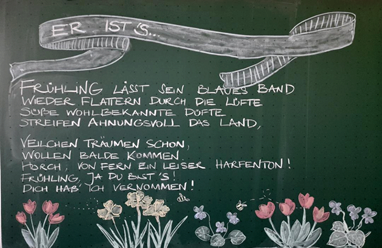 ER IST'S...
FRÜHLING LÄSST SEIN BLAUES BAND
WIEDER FLATTERN DURCH DIE LÜFTE
SÜßE WOHLBEKANNTE DÜFTE
STREIFEN AHNUNGSVOLL DAS LAND,
VEILCHEN TRÄUMEN SCHON,
WOLLEN BALDE KOMMEN
HORCH, VON FERN EIN LEISER HARFENTON!
FRÜHLING, JA DU BIST'S!
DICH HAB' ICH VERNOMMEN!